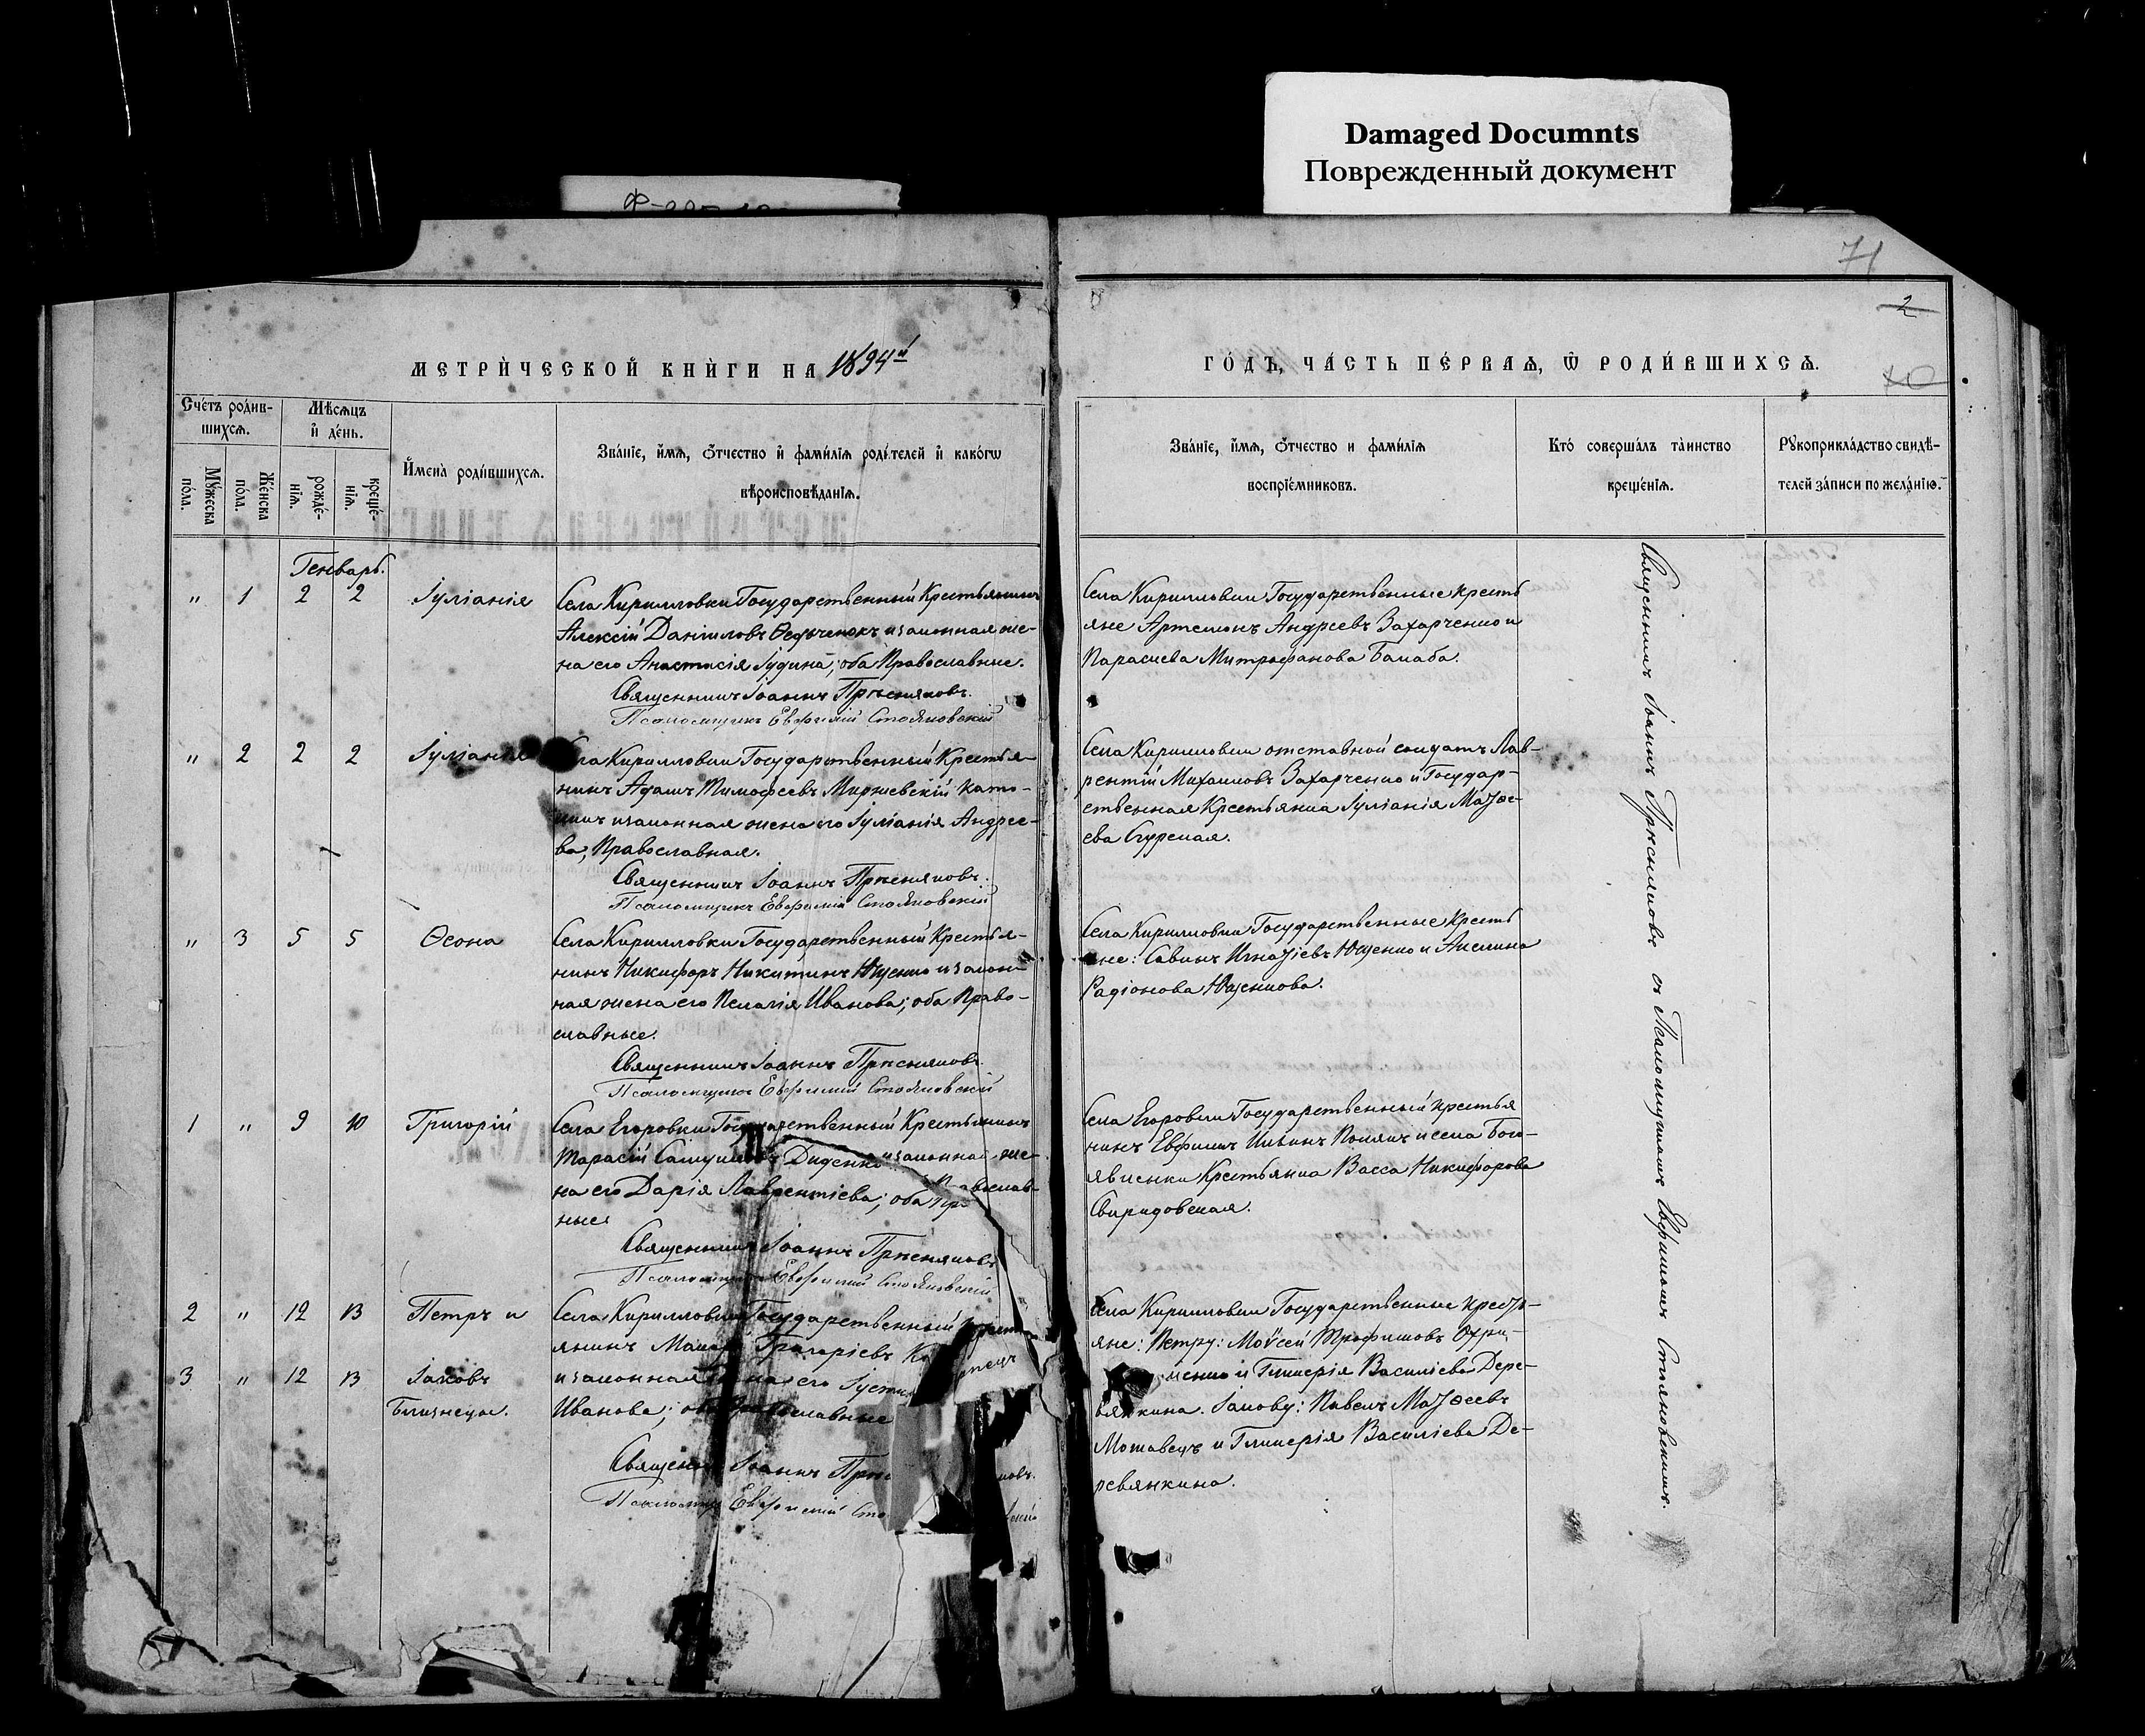 Damaged Documnts
Поврежденный документ
71
2
10
МЕТРИ́ЧЕСКОЙ КНИ́ГИ НА 1894й
ГО́ДЪ, ЧА́СТЬ ПЕ́РВАѦ, Ѿ РОДИ́ВШИХСѦ.
Сче́тъ роди́в-
шихсѧ.
Мѣ́сѧцъ
и҆ де́нь.
Му́жеска
по́ла.
Же́нска
по́ла.
рожде́-
нїѧ.
креще́-
нїѧ.
И҆мена̀ роди́вшихсѧ.
Зва́нїе, и҆́мѧ, ѻ҆́тчество и҆ фами́лїѧ роди́телей и҆ како́гѡ
вѣроисповѣ́данїѧ.
Зва́нїе, и҆́мѧ, ѻ҆́тчество и фами́лїѧ
воспрїе́мниковъ.
Кто́ соверша́лъ та̀инство
креще́нїѧ.
Рꙋкоприкла́дство свидѣ́-
телей за́писи по жела́нїю.
Генварь.
" 1 2 2 Іуліанія
Села Кирилловки Государственный Крестьянинъ
Алексій Даніиловъ Ѳедьченокъ и законная же-
на его Анастасія Іудина; оба Православные.
Священникъ Іоаннъ Прѣсняковъ.
Псаломщикъ Евфимій Стояновскій
Села Кирилловки Государственные Кресть
яне Артемонъ Андреевъ Захарченко и
Параскева Митрофанова Балаба.
" 2 2 2 Іуліанія
Села Кирилловки Государственный Крестья-
нинъ Адамъ Тимофеевъ Миржевскій като-
ликъ и законная жена его Іуліанія Андрее-
ва, Православная.
Священникъ Іоаннъ Прѣсняковъ.
Псаломщикъ Евфимій Стояновскій
Села Кирилловки отставной солдатъ Лав-
рентій Михаиловъ Захарченко и Государ-
ственная Крестьянка Іуліанія Матѳе-
ева Сурская.
" 3 5 5 Ѳеона
Села Кирилловки Государственный Крестья-
нинъ Никифоръ Никитинъ Ющенко и закон-
ная жена его Пелагія Иванова; оба Право-
славные.
Священникъ Іоаннъ Прѣсняковъ.
Псаломщикъ Евфимій Стояновскій
Села Кирилловки Государственные Кресть
яне: Савинъ Игнатіевъ Ющенко и Акилина
Радіонова Ющенкова.
1 " 9 10 Григорій
Села Егоровки Государственный Крестьянинъ
Тарасій Самуиловъ Диденко и законная же-
на его Дарія Лаврентіева; оба Православ-
ные
Священникъ Іоаннъ Прѣсняковъ
Псаломщикъ Евфимій Стояновскій
Села Егоровки Государственный Крестья
нинъ Евфимій Ильинъ Полякъ и села Бого-
явленки Крестьянка Васса Никифорова
Свиридовская.
2 " 12 13 Петръ и
3 " 12 13 Іаковъ
Близнецы.
Села Кирилловки Государственный Кресть
янинъ Григоріевъ
и законная жена его
Иванова; оба Православные
Священникъ Іоаннъ Прѣсняковъ.
Псаломщикъ Евфимій
Села Кирилловки Государственные Кресть-
яне: Петру: Моѵсей Трофимовъ Охри-
менко и Гликерія Василіева Дере-
вянкина. Іакову: Павелъ Матѳеевъ
Мотавецъ и Гликерія Василіева Де-
ревянкина.
Священникъ Іоаннъ Прѣсняковъ съ Псаломщикомъ Евфиміемъ Стояновскимъ.